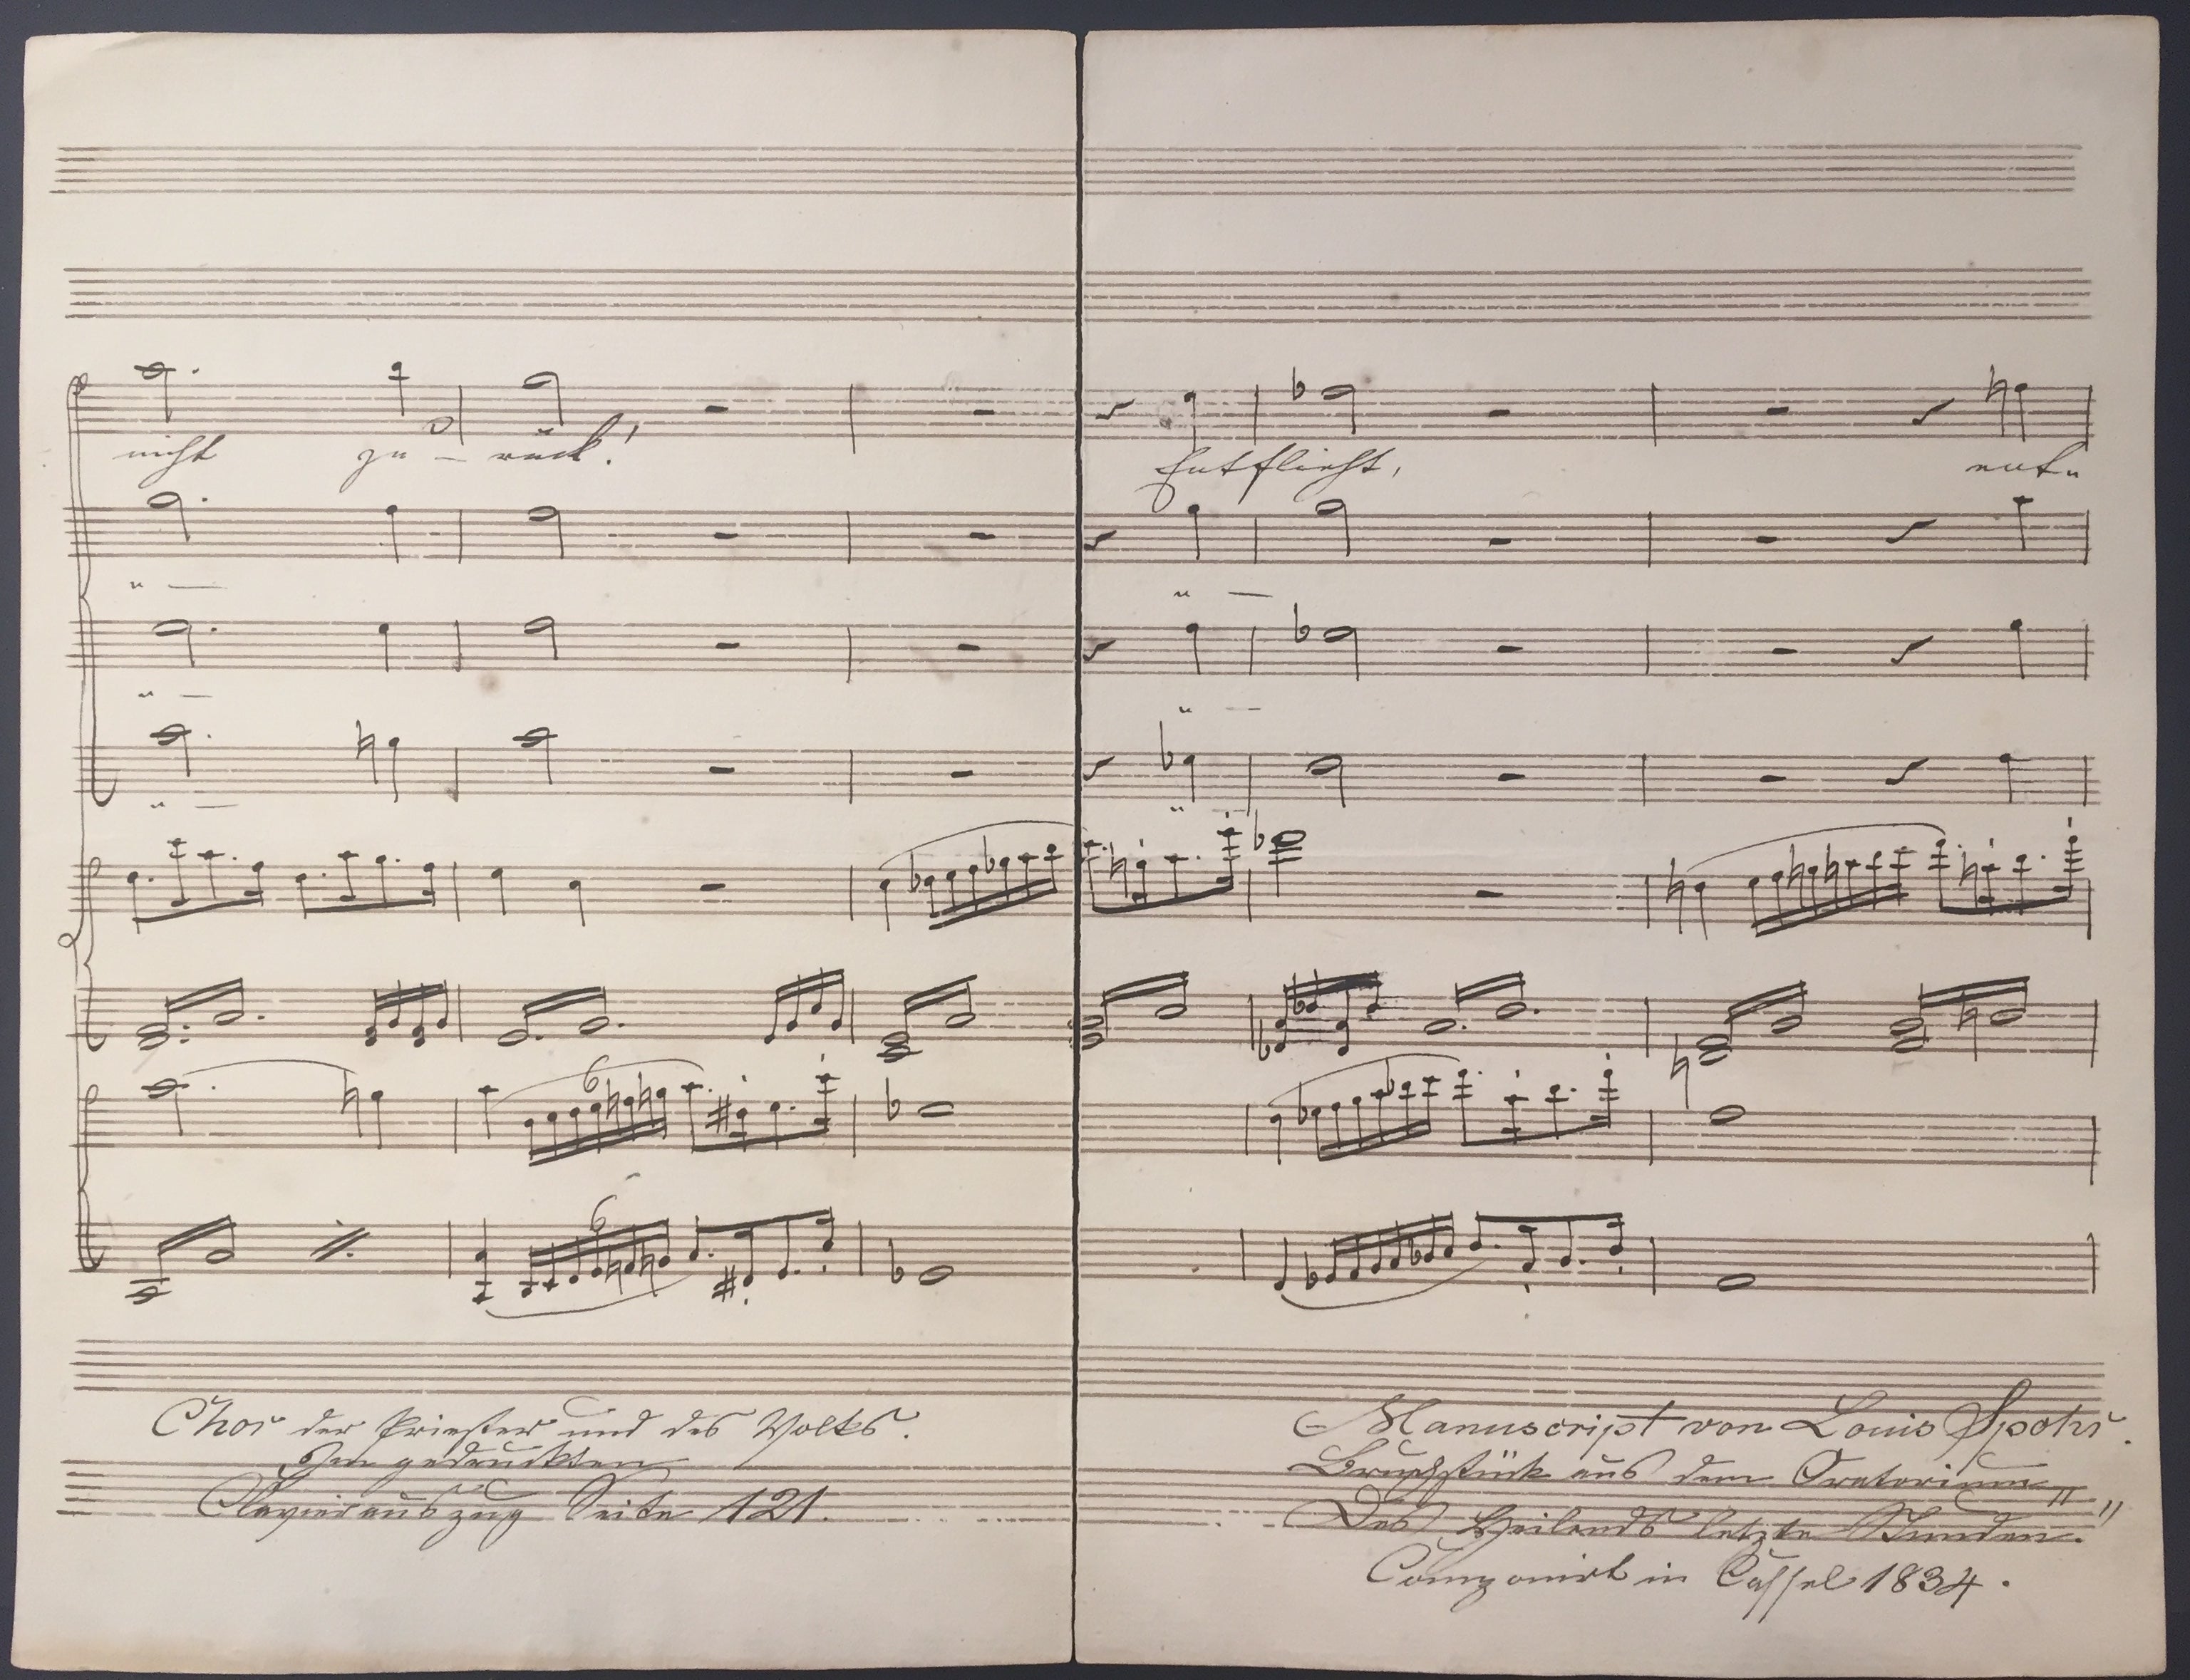 nicht zu - rück! Entflieht, ent=
" —
" —
" —
" —
" —
" —
6
6
Chor der Priester und des Volks.
Im gedruckten
Clavierauszug Seite 121.
Manuscript von Louis Spohr.
Bruchstück aus dem Oratorium
"Des Heilands letzte Stunden."
Componirt in Cassel 1834.